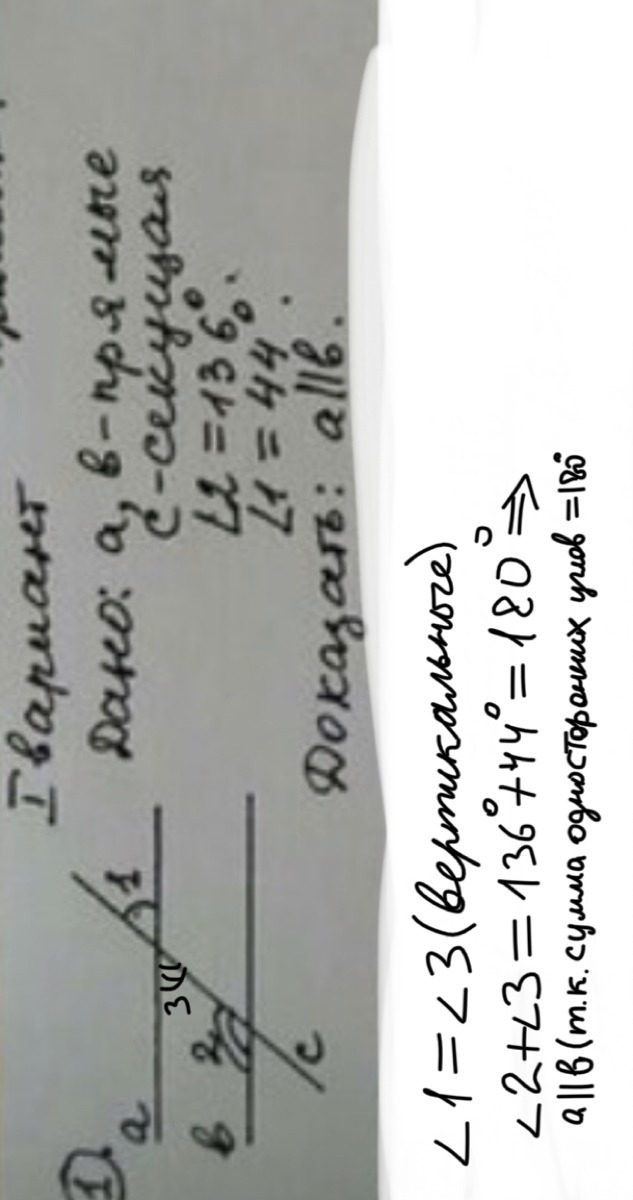 I вариант
1.
a
1
3
в
2
c
Дано: a, в-прямые
c-секущая
∠2=136°.
∠1=44°.
Доказать: a||в.
∠1=∠3(вертикальные)
∠2+∠3=136°+44°=180°⇒
a||в(т.к. сумма односторонних углов =180°